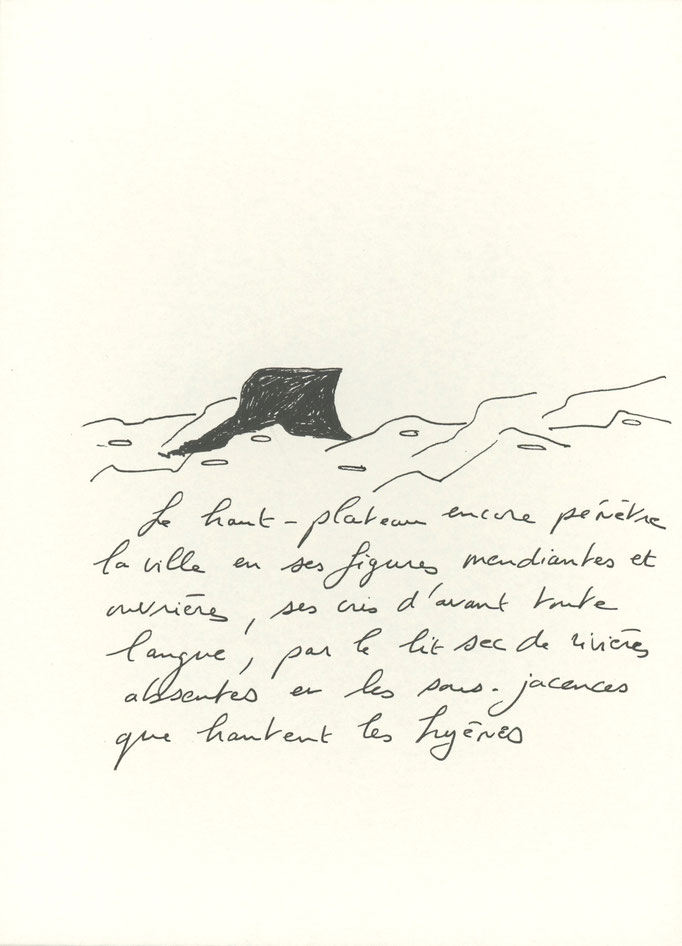 Le haut-plateau encore pénètre
la ville en ses figures mendiantes et
ouvrières, ses cris d'avant toute
langue, par le lit sec de rivières
absentes en les sous-jacences
que hantent les hyènes